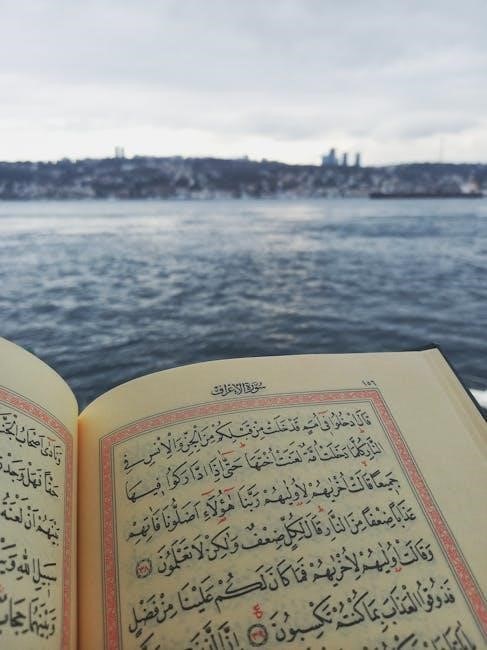 سُورَةُ الْاَعْرَافِ
١٥٤
قَالَ ادْخُلُوا فٓي اُمَمٍ قَدْ خَلَتْ مِنْ قَبْلِكُمْ مِنَ الْجِنِّ وَالْاِنْسِ فِي
النَّارِ كُلَّمَا دَخَلَتْ اُمَّةٌ لَعَنَتْ اُخْتَهَا حَتّٰٓى اِذَا ادَّارَكُوا فٖيهَا
جَمٖيعًا قَالَتْ اُخْرٰيهُمْ لِاُولٰيهُمْ رَبَّنَا هٰٓؤُ۬لَٓاءِ اَضَلُّونَا فَاٰتِهِمْ
عَذَابًا ضِعْفًا مِنَ النَّارِ قَالَ لِكُلٍّ ضِعْفٌ وَلٰكِنْ لَا تَعْلَمُونَ ٣٨
وَقَالَتْ اُولٰيهُمْ لِاُخْرٰيهُمْ فَمَا كَانَ لَكُمْ عَلَيْنَا مِنْ فَضْلٍ
فَذُوقُوا الْعَذَابَ بِمَا كُنْتُمْ تَكْسِبُونَ ٣٩ اِنَّ الَّذٖينَ
وَنَادٰٓى اَصْحَابُ
حَقًّا فَهَلْ
بَيْنَهُمْ اَنْ لَعْنَةُ
سَبٖيلِ اللّٰهِ
وَبَيْنَهُمَا حِجَابٌ